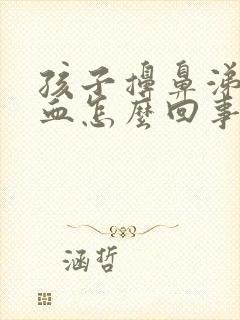 孩子擤鼻涕
血怎麼回事
涵哲